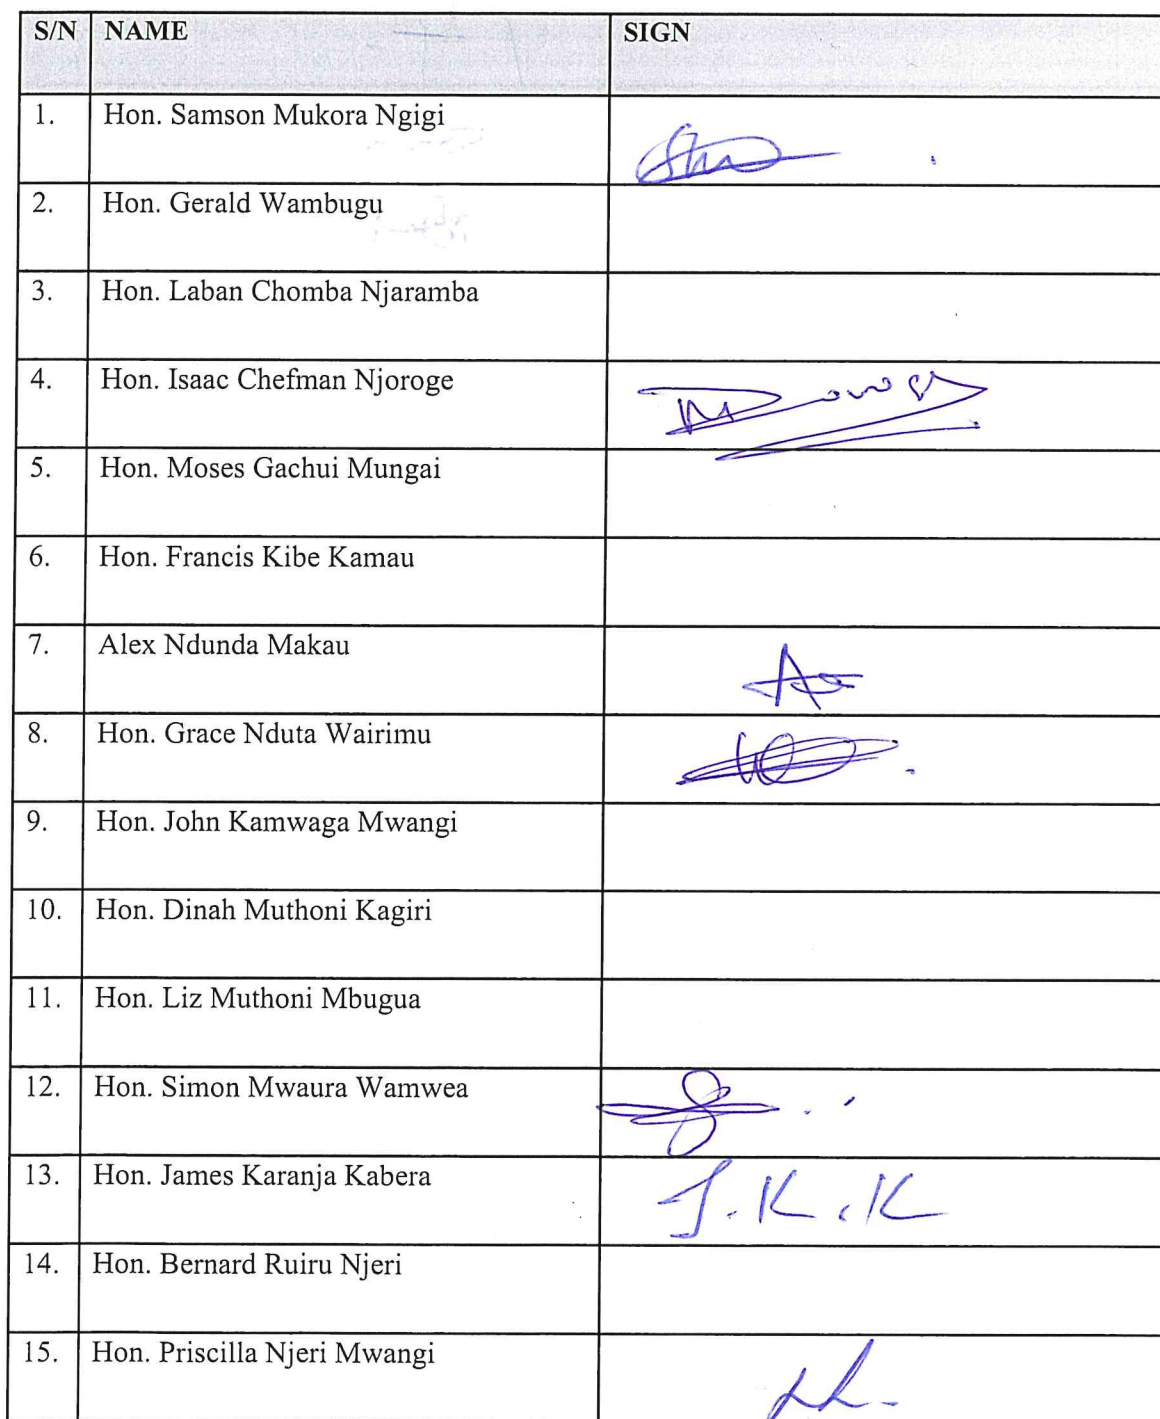 S/N NAME SIGN
1. Hon. Samson Mukora Ngigi
2. Hon. Gerald Wambugu
3. Hon. Laban Chomba Njaramba
4. Hon. Isaac Chefman Njoroge
5. Hon. Moses Gachui Mungai
6. Hon. Francis Kibe Kamau
7. Alex Ndunda Makau
8. Hon. Grace Nduta Wairimu
9. Hon. John Kamwaga Mwangi
10. Hon. Dinah Muthoni Kagiri
11. Hon. Liz Muthoni Mbugua
12. Hon. Simon Mwaura Wamwea
13. Hon. James Karanja Kabera J.K.K
14. Hon. Bernard Ruiru Njeri
15. Hon. Priscilla Njeri Mwangi